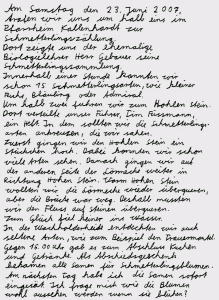 Am Samstag den 23. Juni 2007,
trafen wir uns um halb eins im
Pfarrheim Kallenhardt zur
Schmetterlingszählung.
Dort zeigte uns der ehemalige
Biologielehrer Herr Gebauer seine
Schmetterlingssammlung.
Innerhalb einer Stunde kannten wir
schon 15 Schmetterlingsarten, wie kleiner
Fuchs, Bläuling oder Admiral.
Um halb zwei fuhren wir zum Hohlen Stein.
Dort verteilt unser Führer, Tim
ein Heft. In den sollten wir die Schmetterlings-
arten ankreuzen, die wir sahen.
Zuerst gingen wir den Hohlen Stein ein
Stückchen hoch. Dabei konnten wir schon
viele Arten sehen. Danach gingen wir auf
der anderen Seite der Lörmecke weiter in
Richtung Hohlen Stein. Vom Hohlen Stein
wollten wir die Lörmecke wieder überqueren,
aber die Brücke war weg. Deshalb mussten
wir den Fluss auf Steinen überqueren.
Zum Glück fiel keiner ins Wasser.
In der Wacholderheide entdeckten wir auch
seltene Arten, wie zum Beispiel den
Gegen 16.00 Uhr gab es zum Abschluss Kuchen
und Getränke. Als Abschiedsgeschenk
bekamen alle Samen für Schmetterlingsblumen.
Am nächsten Tag hab ich die Samen sofort
eingesät. Ich frage mich wie die Blumen
wohl aussehen werden wenn sie blühen?